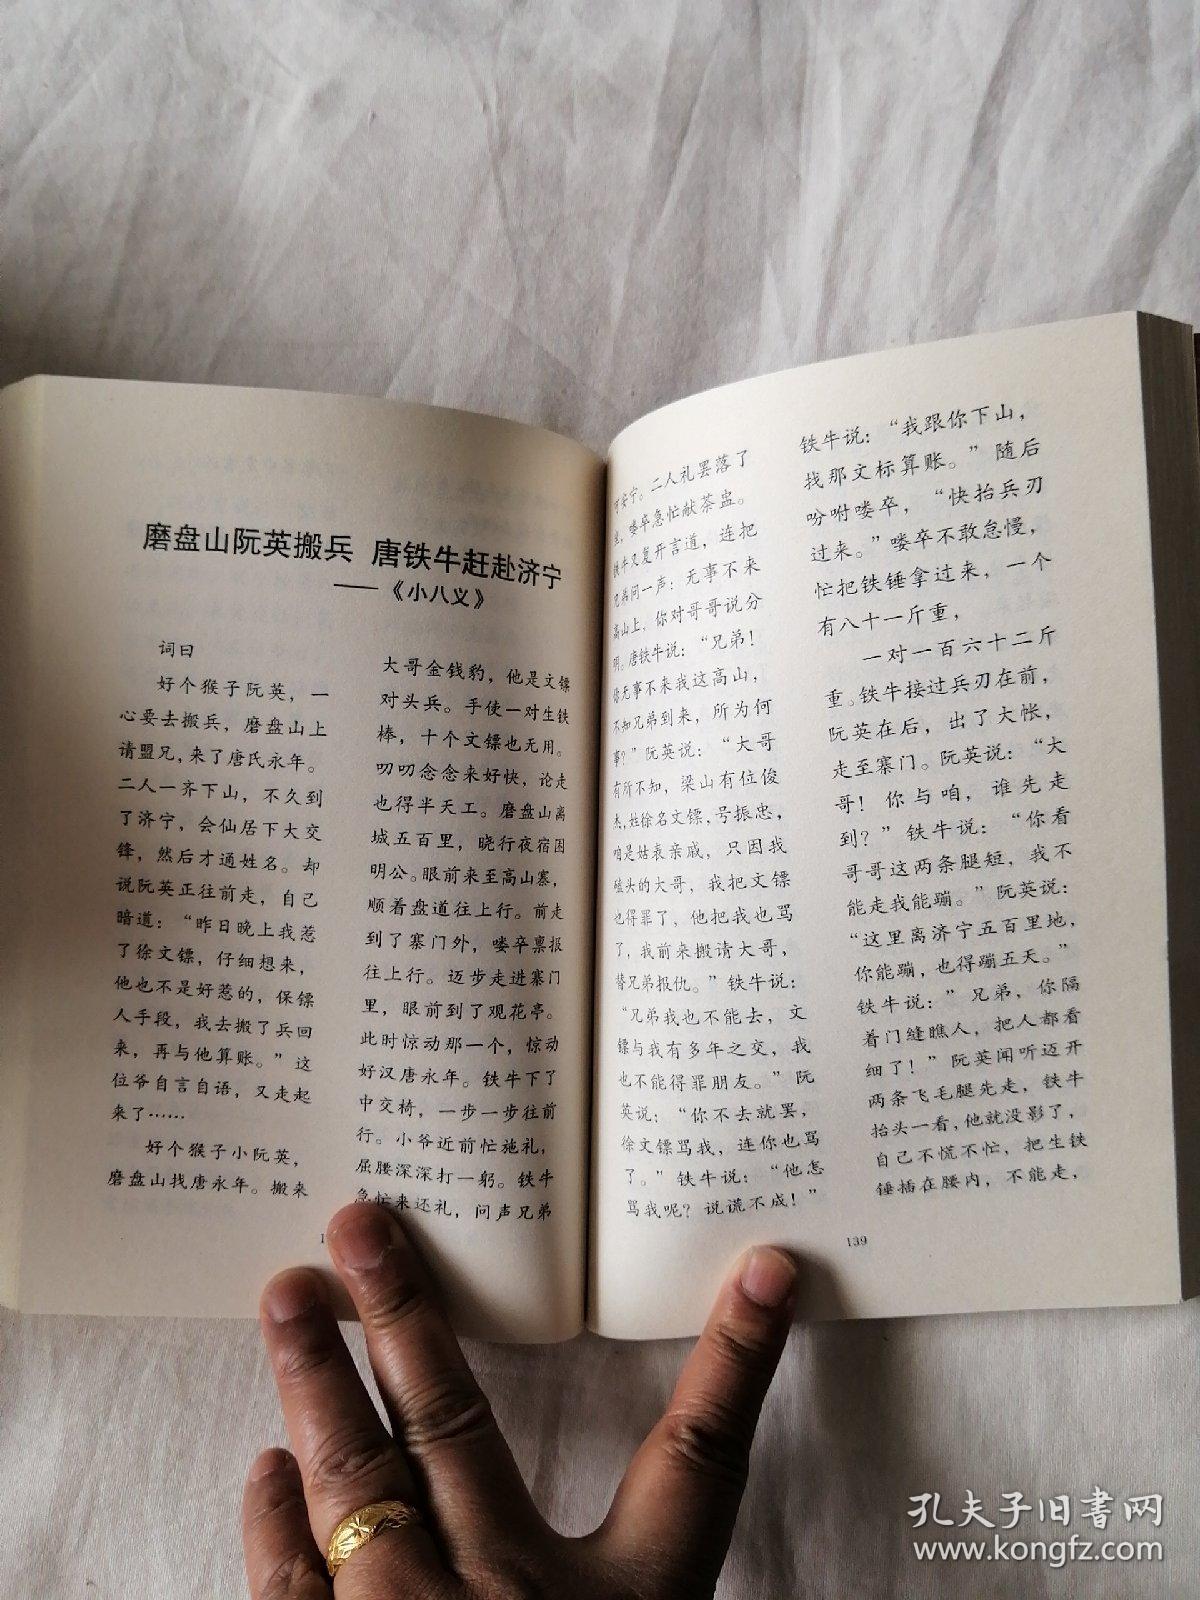 磨盘山阮英搬兵 唐铁牛赶赴济宁
——《小八义》
词曰
好个猴子阮英，一
心要去搬兵，磨盘山上
请盟兄，来了唐氏永年。
二人一齐下山，不久到
了济宁，会仙居下大交
锋，然后才通姓名。却
说阮英正往前走，自己
暗道：“昨日晚上我惹
了徐文镖，仔细想来，
他也不是好惹的，保镖
人手段，我去搬了兵回
来，再与他算账。”这
位爷自言自语，又走起
来了……
好个猴子小阮英，
磨盘山找唐永年。搬来
大哥金钱豹，他是文镖
对头兵。手使一对生铁
棒，十个文镖也无用。
叨叨念念来好快，论走
也得半天工。磨盘山离
城五百里，晓行夜宿困
明公。眼前来至高山寨，
顺着盘道往上行。前走
到了寨门外，喽卒禀报
往上行。迈步走进寨门
里，眼前到了观花亭。
此时惊动那一个，惊动
好汉唐永年。铁牛下了
中交椅，一步一步往前
行。小爷近前忙施礼，
屈腰深深打一躬。铁牛
急忙来还礼，问声兄弟
可安宁。二人礼罢落了
座，喽卒急忙献茶盅。
铁牛又复开言道，连把
兄弟问一声：无事不来
高山上，你对哥哥说分
明。唐铁牛说：“兄弟！
你无事不来我这高山，
不知兄弟到来，所为何
事？”阮英说：“大哥
有所不知，梁山有位俊
杰，姓徐名文镖，号振忠，
咱是姑表亲戚，只因我
磕头的大哥，我把文镖
也得罪了，他把我也骂
了，我前来搬请大哥，
替兄弟报仇。”铁牛说：
“兄弟我也不能去，文
镖与我有多年之交，我
也不能得罪朋友。”阮
英说：“你不去就罢，
徐文镖骂我，连你也骂
了。”铁牛说：“他怎
骂我呢？说谎不成！”
铁牛说：“我跟你下山，
找那文标算账。”随后
吩咐喽卒，“快抬兵刃
过来。”喽卒不敢怠慢，
忙把铁锤拿过来，一个
有八十一斤重，
一对一百六十二斤
重。铁牛接过兵刃在前，
阮英在后，出了大帐，
走至寨门。阮英说：“大
哥！你与咱，谁先走
到？”铁牛说：“你看
哥哥这两条腿短，我不
能走我能蹦。”阮英说：
“这里离济宁五百里地，
你能蹦，也得蹦五天。”
铁牛说：”兄弟，你隔
着门缝瞧人，把人都看
细了！”阮英闻听迈开
两条飞毛腿先走，铁牛
抬头一看，他就没影了，
自己不慌不忙，把生铁
锤插在腰内，不能走，
139
孔夫子旧书网
www.kongfz.com